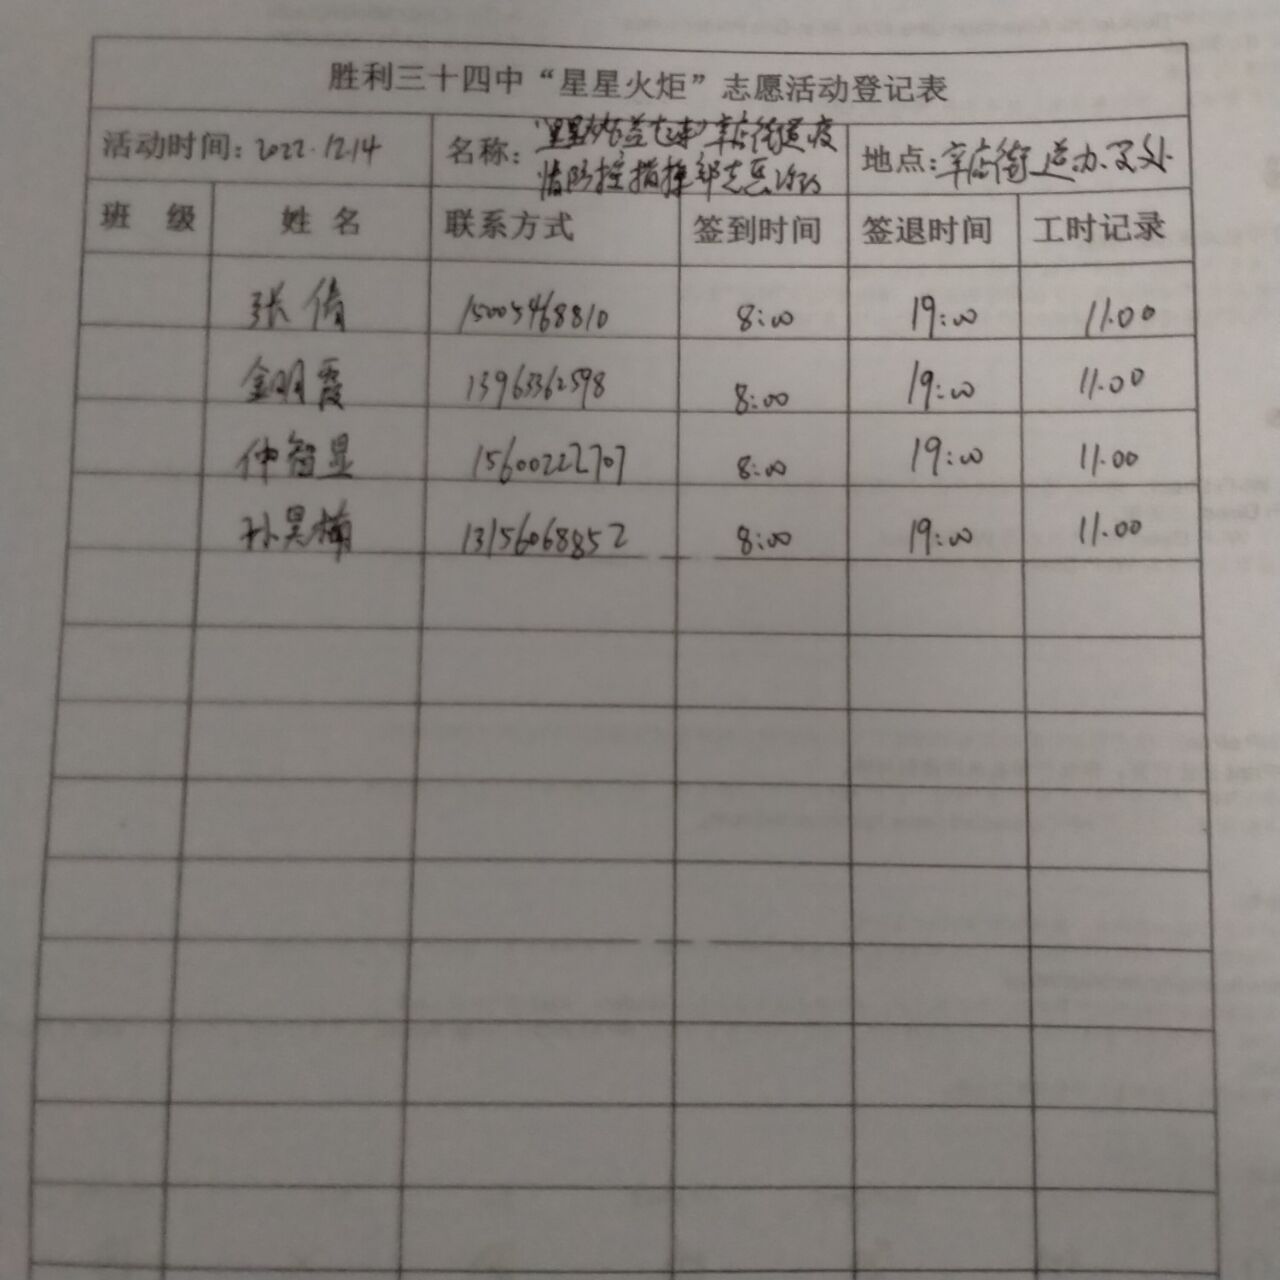 胜利三十四中“星星火炬”志愿活动登记表
活动时间：2022.12.14 名称： 辛店街道疫 地点：辛店街道办事处
情防控指挥部志愿活动
班 级 姓 名 联系方式 签到时间 签退时间 工时记录
张倩 15005468810 8:00 19:00 11.00
金明霞 13963362598 8:00 19:00 11.00
仲智显 15600222707 8:00 19:00 11.00
孙昊楠 13156068852 8:00 19:00 11.00